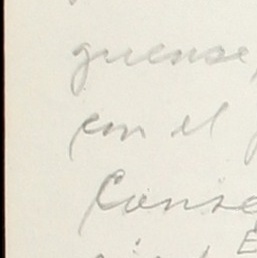 guense,
con el
Conse